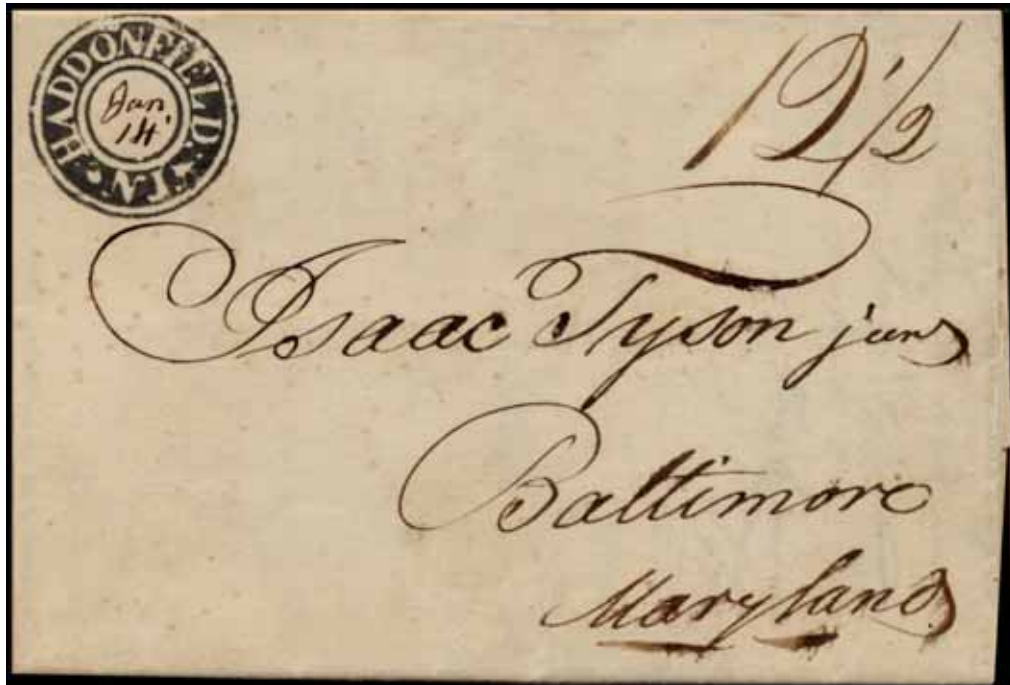 HADDONFIELD. N.J.
Jan
14
12 1/2
Isaac Tyson jun
Baltimore
Maryland